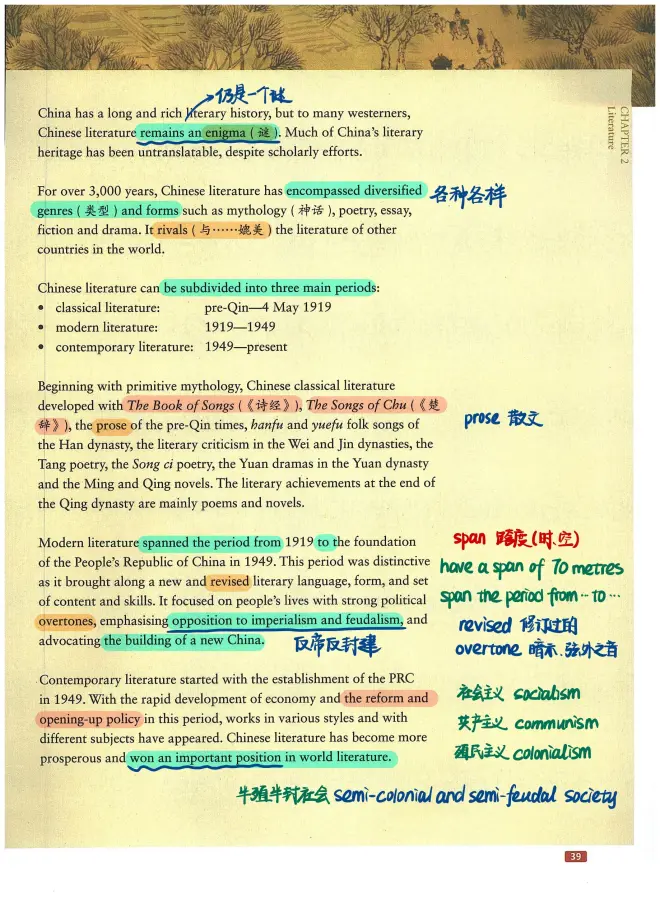 CHAPTER 2
Literature
仍是一个谜
China has a long and rich literary history, but to many westerners,
Chinese literature remains an enigma (谜). Much of China's literary
heritage has been untranslatable, despite scholarly efforts.
For over 3,000 years, Chinese literature has encompassed diversified
genres (类型) and forms such as mythology (神话), poetry, essay,
各种各样
fiction and drama. It rivals (与……媲美) the literature of other
countries in the world.
Chinese literature can be subdivided into three main periods:
• classical literature: pre-Qin—4 May 1919
• modern literature: 1919—1949
• contemporary literature: 1949—present
Beginning with primitive mythology, Chinese classical literature
developed with The Book of Songs (《诗经》), The Songs of Chu (《楚
辞》), the prose of the pre-Qin times, hanfu and yuefu folk songs of
prose 散文
the Han dynasty, the literary criticism in the Wei and Jin dynasties, the
Tang poetry, the Song ci poetry, the Yuan dramas in the Yuan dynasty
and the Ming and Qing novels. The literary achievements at the end of
the Qing dynasty are mainly poems and novels.
Modern literature spanned the period from 1919 to the foundation
of the People's Republic of China in 1949. This period was distinctive
as it brought along a new and revised literary language, form, and set
of content and skills. It focused on people's lives with strong political
overtones, emphasising opposition to imperialism and feudalism, and
advocating the building of a new China.
反帝反封建
span 跨度(时.空)
have a span of 70 metres
span the period from ‥ to …
revised 修订过的
overtone 暗示.弦外之音
Contemporary literature started with the establishment of the PRC
in 1949. With the rapid development of economy and the reform and
opening-up policy in this period, works in various styles and with
different subjects have appeared. Chinese literature has become more
prosperous and won an important position in world literature.
社会主义 socialism
共产主义 communism
殖民主义 colonialism
半殖半封社会 semi-colonial and semi-feudal society
39